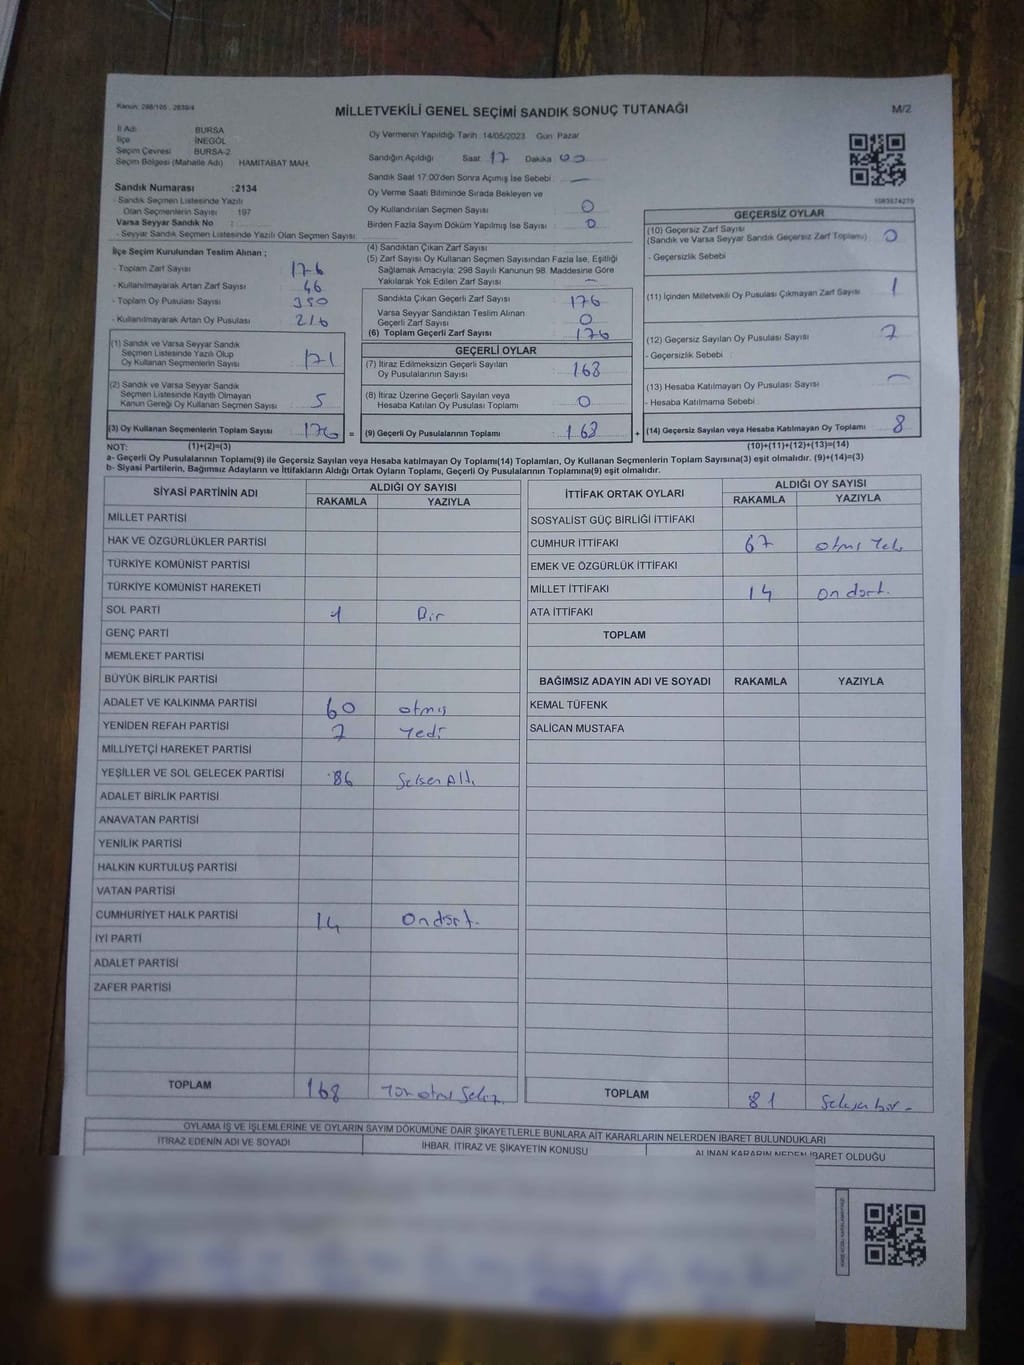 Kanun: 298/105 , 2839/4
MİLLETVEKİLİ GENEL SEÇİMİ SANDIK SONUÇ TUTANAĞI
M/2
İl Adı BURSA
İlçe İNEGÖL
Seçim Çevresi BURSA-2
Seçim Bölgesi (Mahalle Adı) HAMİTABAT MAH.
Sandık Numarası :2134
- Sandık Seçmen Listesinde Yazılı
Olan Seçmenlerin Sayısı : 197
Varsa Seyyar Sandık No :
- Seyyar Sandık Seçmen Listesinde Yazılı Olan Seçmen Sayısı:
Oy Vermenin Yapıldığı Tarih :14/05/2023 Gün Pazar
Sandığın Açıldığı Saat 17 Dakika 00
Sandık Saat 17:00'den Sonra Açımış İse Sebebi : —
Oy Verme Saati Bitiminde Sırada Bekleyen ve
Oy Kullandırılan Seçmen Sayısı 0
Birden Fazla Sayım Döküm Yapılmış İse Sayısı 0
İlçe Seçim Kurulundan Teslim Alınan ;
- Toplam Zarf Sayısı 176
- Kullanılmayarak Artan Zarf Sayısı 46
- Toplam Oy Pusulası Sayısı 390
- Kullanılmayarak Artan Oy Pusulası 216
(1) Sandık ve Varsa Seyyar Sandık
Seçmen Listesinde Yazılı Olup
Oy Kullanan Seçmenlerin Sayısı 171
(2) Sandık ve Varsa Seyyar Sandık
Seçmen Listesinde Kayıtlı Olmayan
Kanun Gereği Oy Kullanan Seçmen Sayısı 5
(3) Oy Kullanan Seçmenlerin Toplam Sayısı 176 =
(4) Sandıktan Çıkan Zarf Sayısı
(5) Zarf Sayısı Oy Kullanan Seçmen Sayısından Fazla İse, Eşitliği
Sağlamak Amacıyla; 298 Sayılı Kanunun 98. Maddesine Göre
Yakılarak Yok Edilen Zarf Sayısı —
Sandıkta Çıkan Geçerli Zarf Sayısı 176
Varsa Seyyar Sandıktan Teslim Alınan
Geçerli Zarf Sayısı 0
(6) Toplam Geçerli Zarf Sayısı 176
GEÇERLİ OYLAR
(7) İtiraz Edilmeksizin Geçerli Sayılan
Oy Pusulalarının Sayısı 168
(8) İtiraz Üzerine Geçerli Sayılan veya
Hesaba Katılan Oy Pusulası Toplamı 0
(9) Geçerli Oy Pusulalarının Toplamı 168 +
GEÇERSİZ OYLAR
(10) Geçersiz Zarf Sayısı
(Sandık ve Varsa Seyyar Sandık Geçersiz Zarf Toplamı) 0
- Geçersizlik Sebebi
(11) İçinden Milletvekili Oy Pusulası Çıkmayan Zarf Sayısı 1
(12) Geçersiz Sayılan Oy Pusulası Sayısı 7
- Geçersizlik Sebebi :
(13) Hesaba Katılmayan Oy Pusulası Sayısı —
- Hesaba Katılmama Sebebi
(14) Geçersiz Sayılan veya Hesaba Katılmayan Oy Toplamı 8
NOT: (1)+(2)=(3)
(10)+(11)+(12)+(13)=(14)
a- Geçerli Oy Pusulalarının Toplamı(9) ile Geçersiz Sayılan veya Hesaba katılmayan Oy Toplamı(14) Toplamları, Oy Kullanan Seçmenlerin Toplam Sayısına(3) eşit olmalıdır. (9)+(14)=(3)
b- Siyasi Partilerin, Bağımsız Adayların ve İttifakların Aldığı Ortak Oyların Toplamı, Geçerli Oy Pusulalarının Toplamına(9) eşit olmalıdır.
SİYASİ PARTİNİN ADI ALDIĞI OY SAYISI
RAKAMLA YAZIYLA
MİLLET PARTİSİ
HAK VE ÖZGÜRLÜKLER PARTİSİ
TÜRKİYE KOMÜNİST PARTİSİ
TÜRKİYE KOMÜNİST HAREKETİ
SOL PARTİ 1 Bir
GENÇ PARTİ
MEMLEKET PARTİSİ
BÜYÜK BİRLİK PARTİSİ
ADALET VE KALKINMA PARTİSİ 60 otmış
YENİDEN REFAH PARTİSİ 7 Yedi
MİLLİYETÇİ HAREKET PARTİSİ
YEŞİLLER VE SOL GELECEK PARTİSİ 86 Seksen Altı
ADALET BİRLİK PARTİSİ
ANAVATAN PARTİSİ
YENİLİK PARTİSİ
HALKIN KURTULUŞ PARTİSİ
VATAN PARTİSİ
CUMHURİYET HALK PARTİSİ 14 Ondört.
İYİ PARTİ
ADALET PARTİSİ
ZAFER PARTİSİ
TOPLAM 168
İTTİFAK ORTAK OYLARI ALDIĞI OY SAYISI
RAKAMLA YAZIYLA
SOSYALİST GÜÇ BİRLİĞİ İTTİFAKI
CUMHUR İTTİFAKI 67 otmış Yedi
EMEK VE ÖZGÜRLÜK İTTİFAKI
MİLLET İTTİFAKI 14 on dört.
ATA İTTİFAKI
TOPLAM
BAĞIMSIZ ADAYIN ADI VE SOYADI RAKAMLA YAZIYLA
KEMAL TÜFENK
SALİCAN MUSTAFA
TOPLAM 81 Seksen bir
OYLAMA İŞ VE İŞLEMLERİNE VE OYLARIN SAYIM DÖKÜMÜNE DAİR ŞİKAYETLERLE BUNLARA AİT KARARLARIN NELERDEN İBARET BULUNDUKLARI
İTİRAZ EDENİN ADI VE SOYADI İHBAR, İTİRAZ VE ŞİKAYETİN KONUSU ALINAN KARARIN NEDEN İBARET OLDUĞU